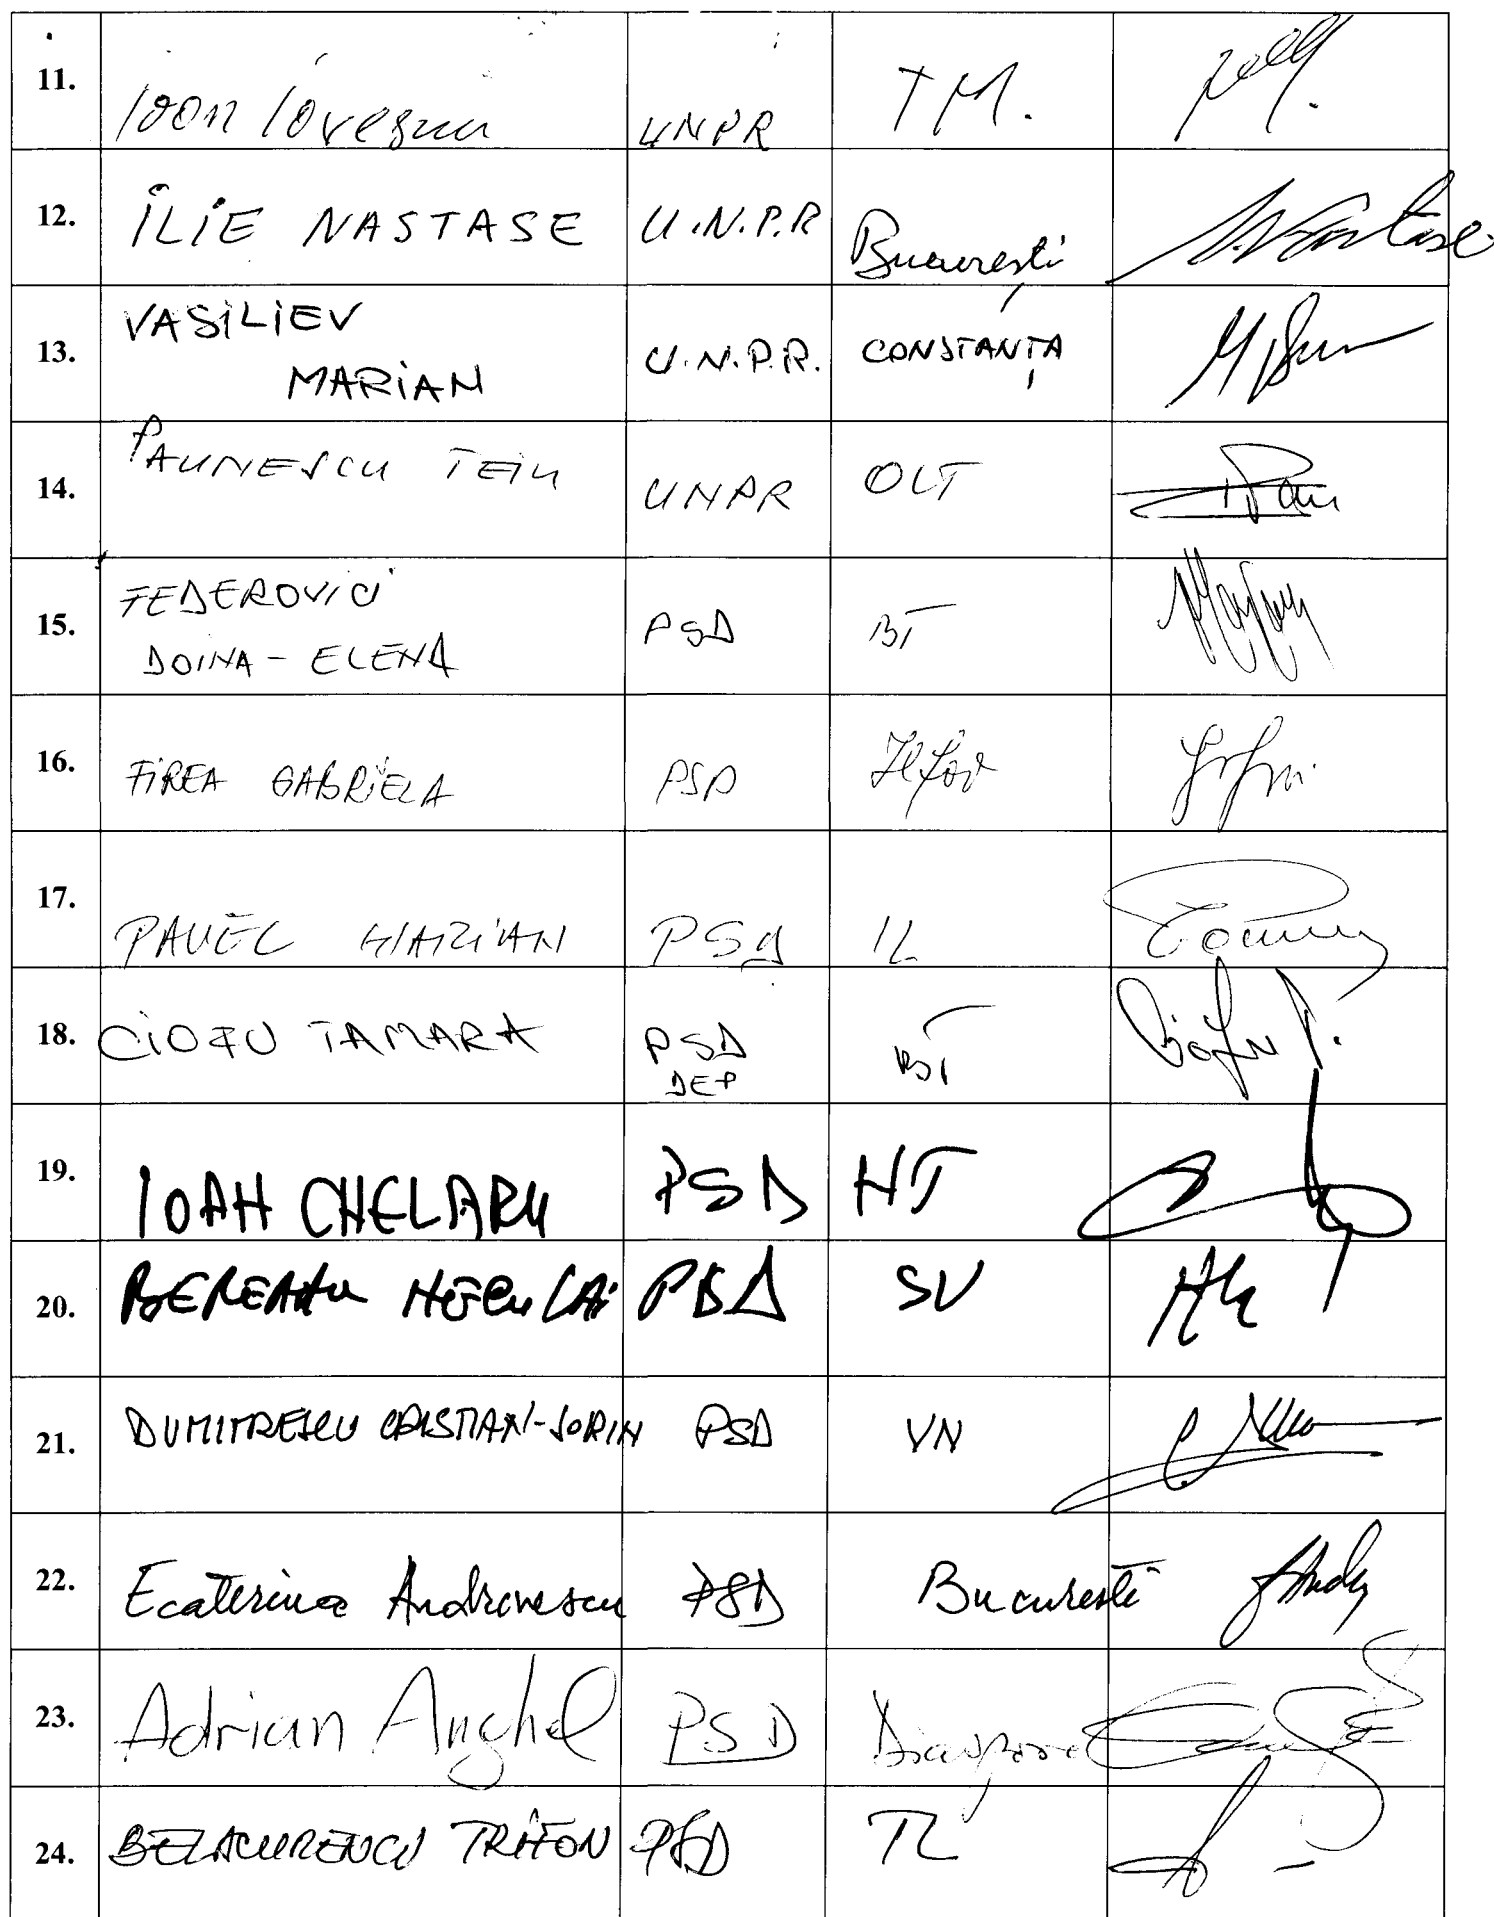 11. Ioan Iovescu UNPR TM.
12. ILIE NASTASE U.N.P.R București Nastase
13. VASILIEV
MARIAN U.N.P.R. CONSTANȚA
14. PAUNESCU TEIU UNPR OLT
15. FEDEROVICI
DOINA - ELENA PSD BT
16. FIREA GABRIELA PSD Ilfov
17. PAVEL MARIAN PSD IL
18. CIOFU TAMARA PSD BT Ciofu T.
DEP
19. IOAN CHELARU PSD NT
20. BEREANU NECULAI PSD SV
21. DUMITRESCU CRISTIAN-SORIN PSD VN
22. Ecaterina Andronescu PSD Bucuresti
23. Adrian Anghel PSD Diaspora
24. BELACURENCU TRIFON PSD TL